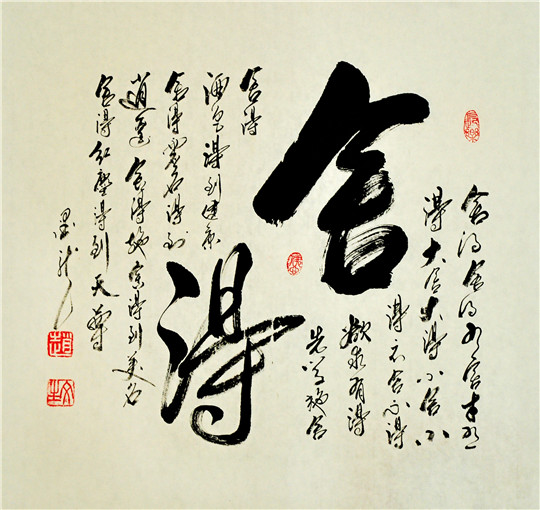 舍得舍得有舍才
得大舍大得小舍小
得不舍不得
欲求有得
先学施舍
舍得
舍得
酒色得到健康
舍得虚名得到
逍遥舍得施得到美名
舍得红尘得到天尊
墨龙